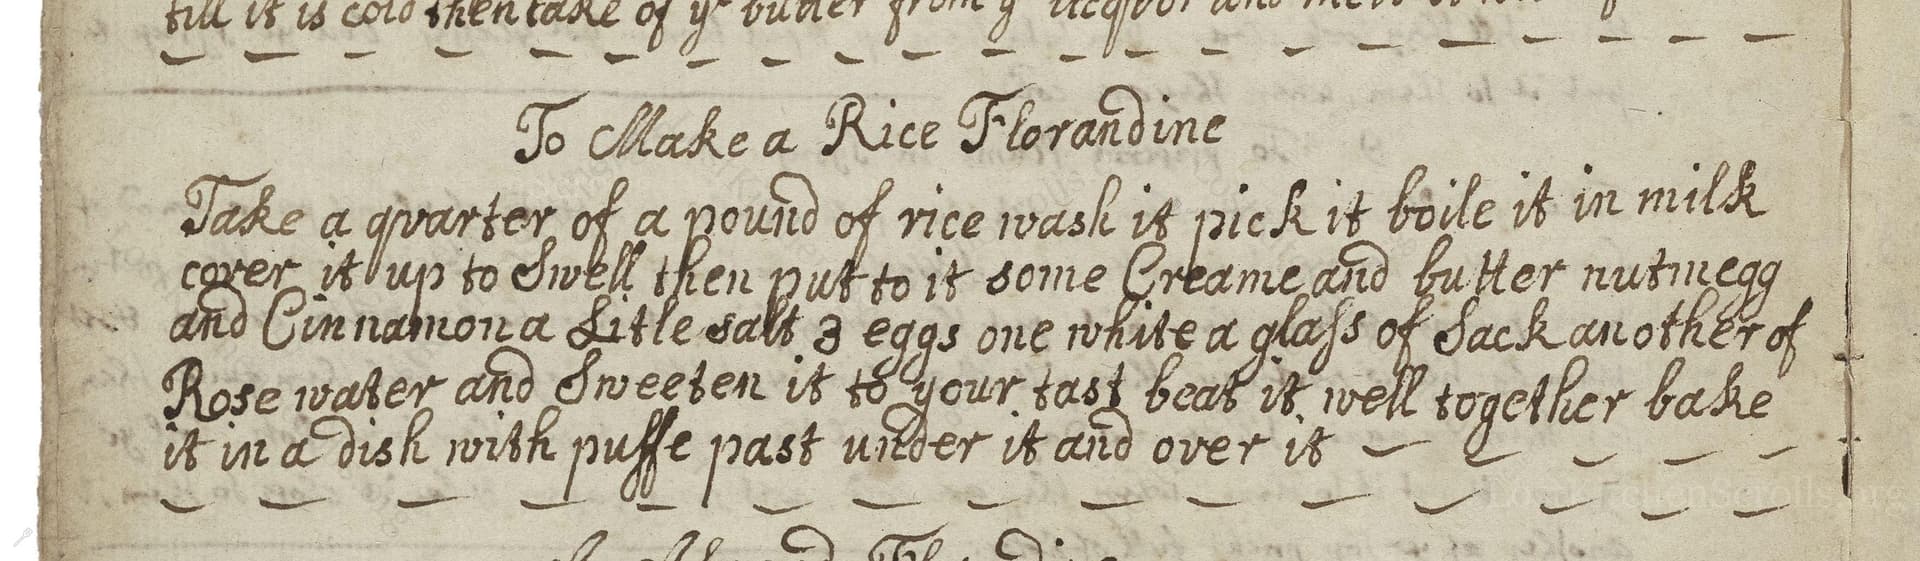 till it is cold then take of yᵉ butter from yᵉ and
To Make a Rice Florandine
Take a quarter of a pound of rice wash it pick it boile it in milk
cover it up to Swell then put to it some Creame and butter nutmegg
and Cinnamon a Litle salt 3 eggs one white a glaſs of Sack another of
Rose water and Sweeten it to your tast beat it well together bake
it in a dish with puffe past under it and over it